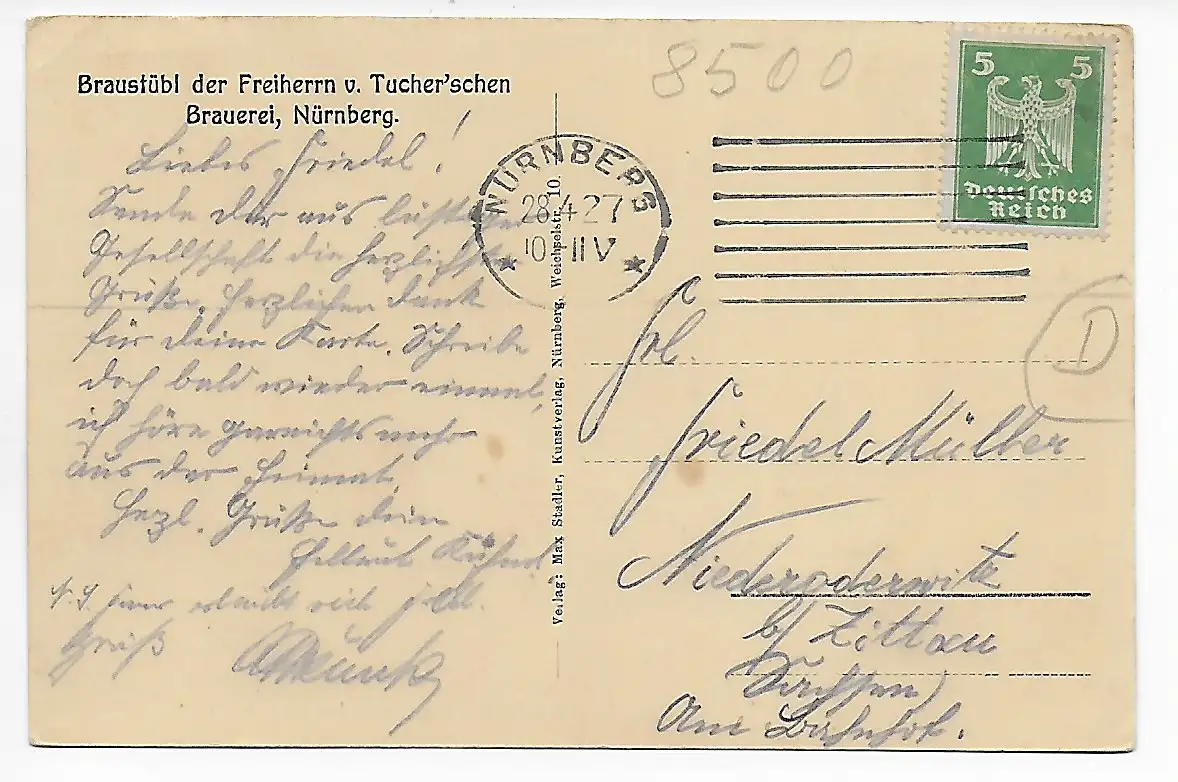 Braustübl der Freiherrn v. Tucher'schen
Brauerei, Nürnberg.
Liebes Friedel!
Sende Dir aus
Gesellschaft die herzlichsten
Grüße, herzlichen Dank
für Deine Karte. Schreibe
doch bald wieder einmal,
ich höre garnichts mehr
aus der Heimat.
Herzl. Grüße Dein
Hellmut
Gruß
Verlag: Max Stadler, Kunstverlag, Nürnberg, Weichselstr. 10.
8500
NÜRNBERG
28.4.27
10-11V
5 5
Deutsches
Reich
D
Frl.
Friedel Müller
Niederoderwitz
b/ Zittau
Sachsen)
Am Bahnhof.